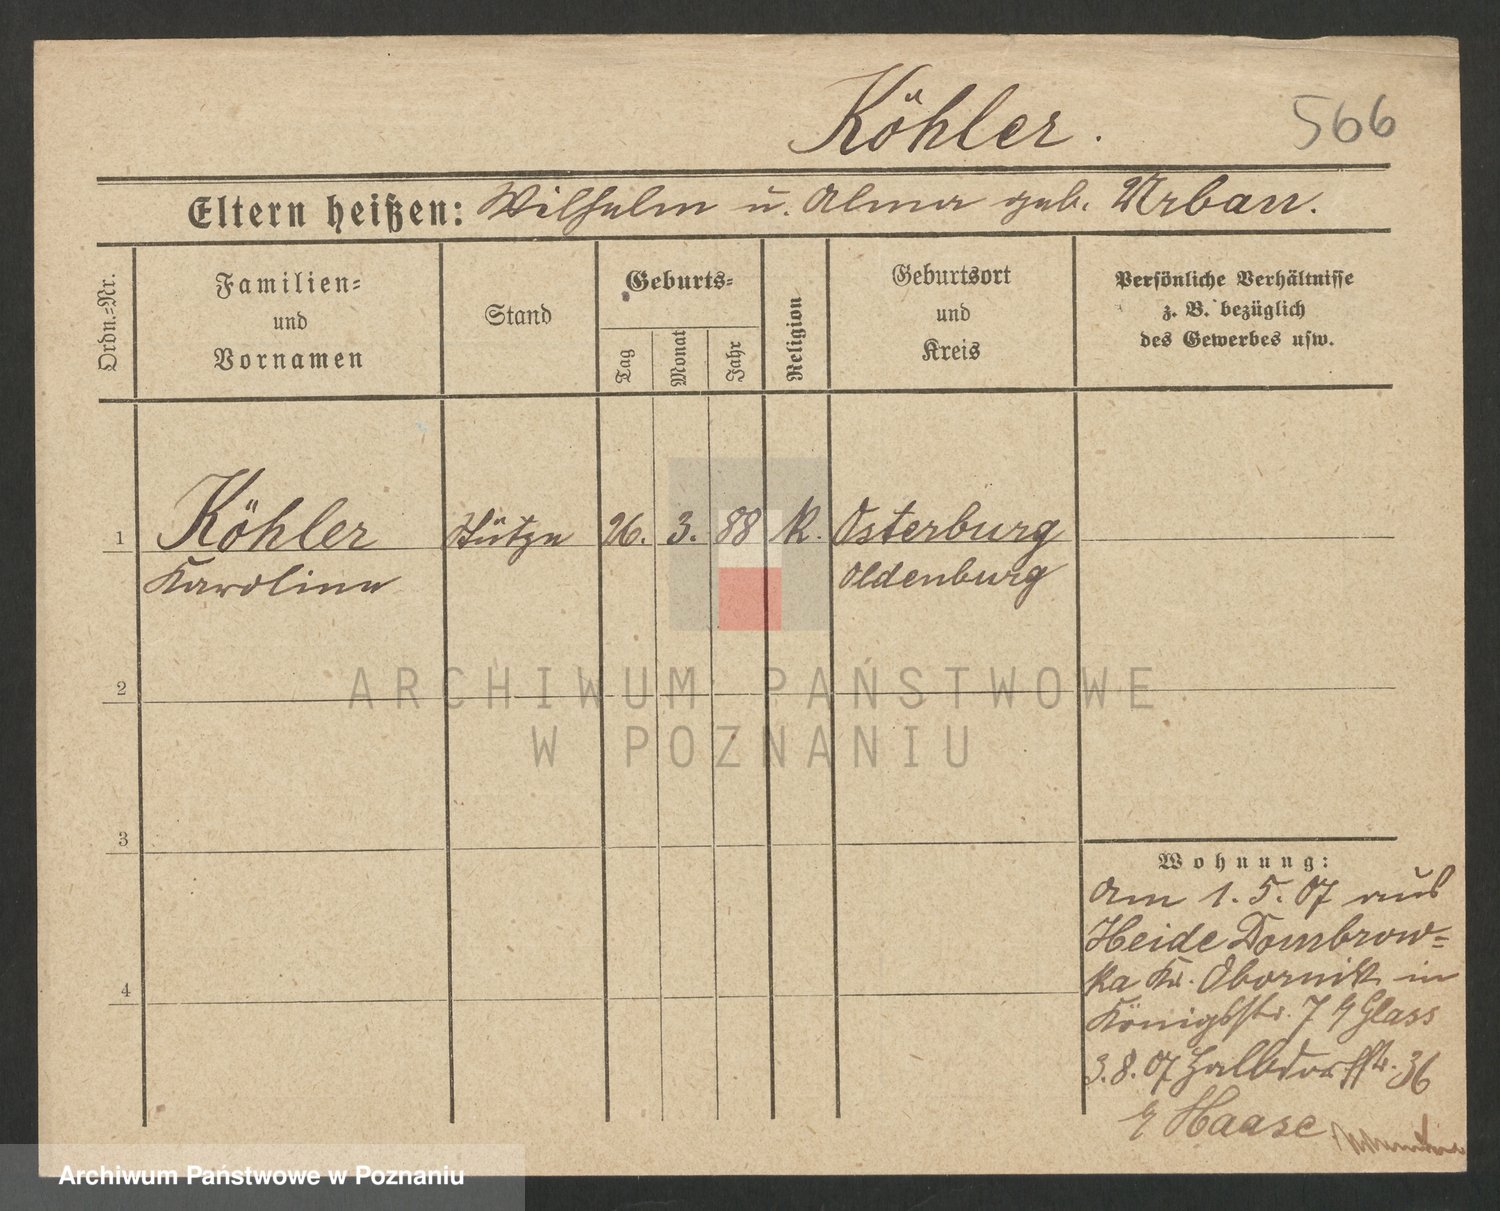 Köhler.
566
Eltern heißen: Wilhelm u. Alma geb. Urban.
Ordn.-Nr.
Familien-
und
Vornamen
Stand
Geburts-
Tag
Monat
Jahr
Religion
Geburtsort
und
Kreis
Persönliche Verhältnisse
z. B. bezüglich
des Gewerbes usw.
1 Köhler Stütze 26. 3. 88 k. Osterburg
Karoline Oldenburg
2
3
4
Wohnung:
Am 1. 5. 07 aus
Heide Dombrow-
ka Kr. Obornik in
Königsstr. 7 Glass
3.8.07 36
Haase
ARCHIWUM PAŃSTWOWE
W POZNANIU
Archiwum Państwowe w Poznaniu